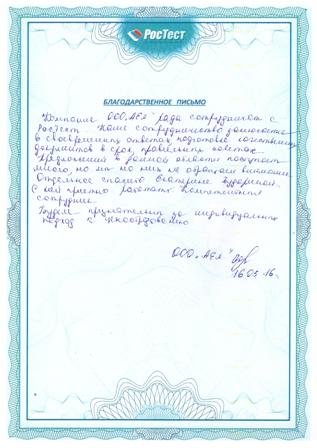 РОСТЕСТ
БЛАГОДАРСТВЕННОЕ ПИСЬМО
Компания ООО „АЕЛ" рада сотрудничать с
РосТест Наше сотрудничество
в своевременных ответах, подготовке
документов в срок,
Предложений в данной области поступает
много, но мы на них не обращаем внимание.
Отдельное спасибо Екатерине
С ней приятно работать. Компетентный
сотрудник.
Будем признательны за индивидуальный
подход к
ООО „АЕЛ"
16.03.16г.